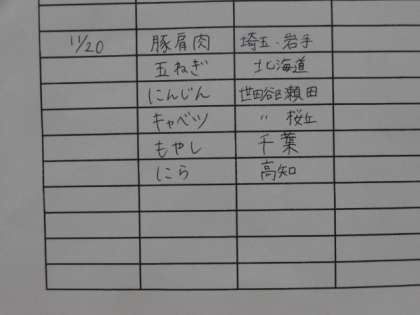 11/20 豚肩肉 埼玉・岩手
玉ねぎ 北海道
にんじん 世田谷区瀬田
キャベツ 〃 桜丘
もやし 千葉
にら 高知